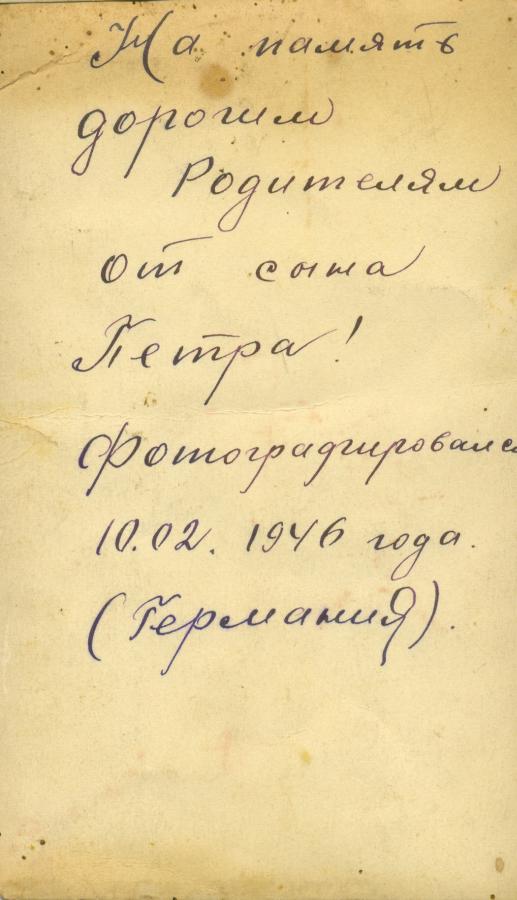 На память
дорогим
Родителям
от сына
Петра!
Фотографировался
10.02.1946 года.
(Германия).